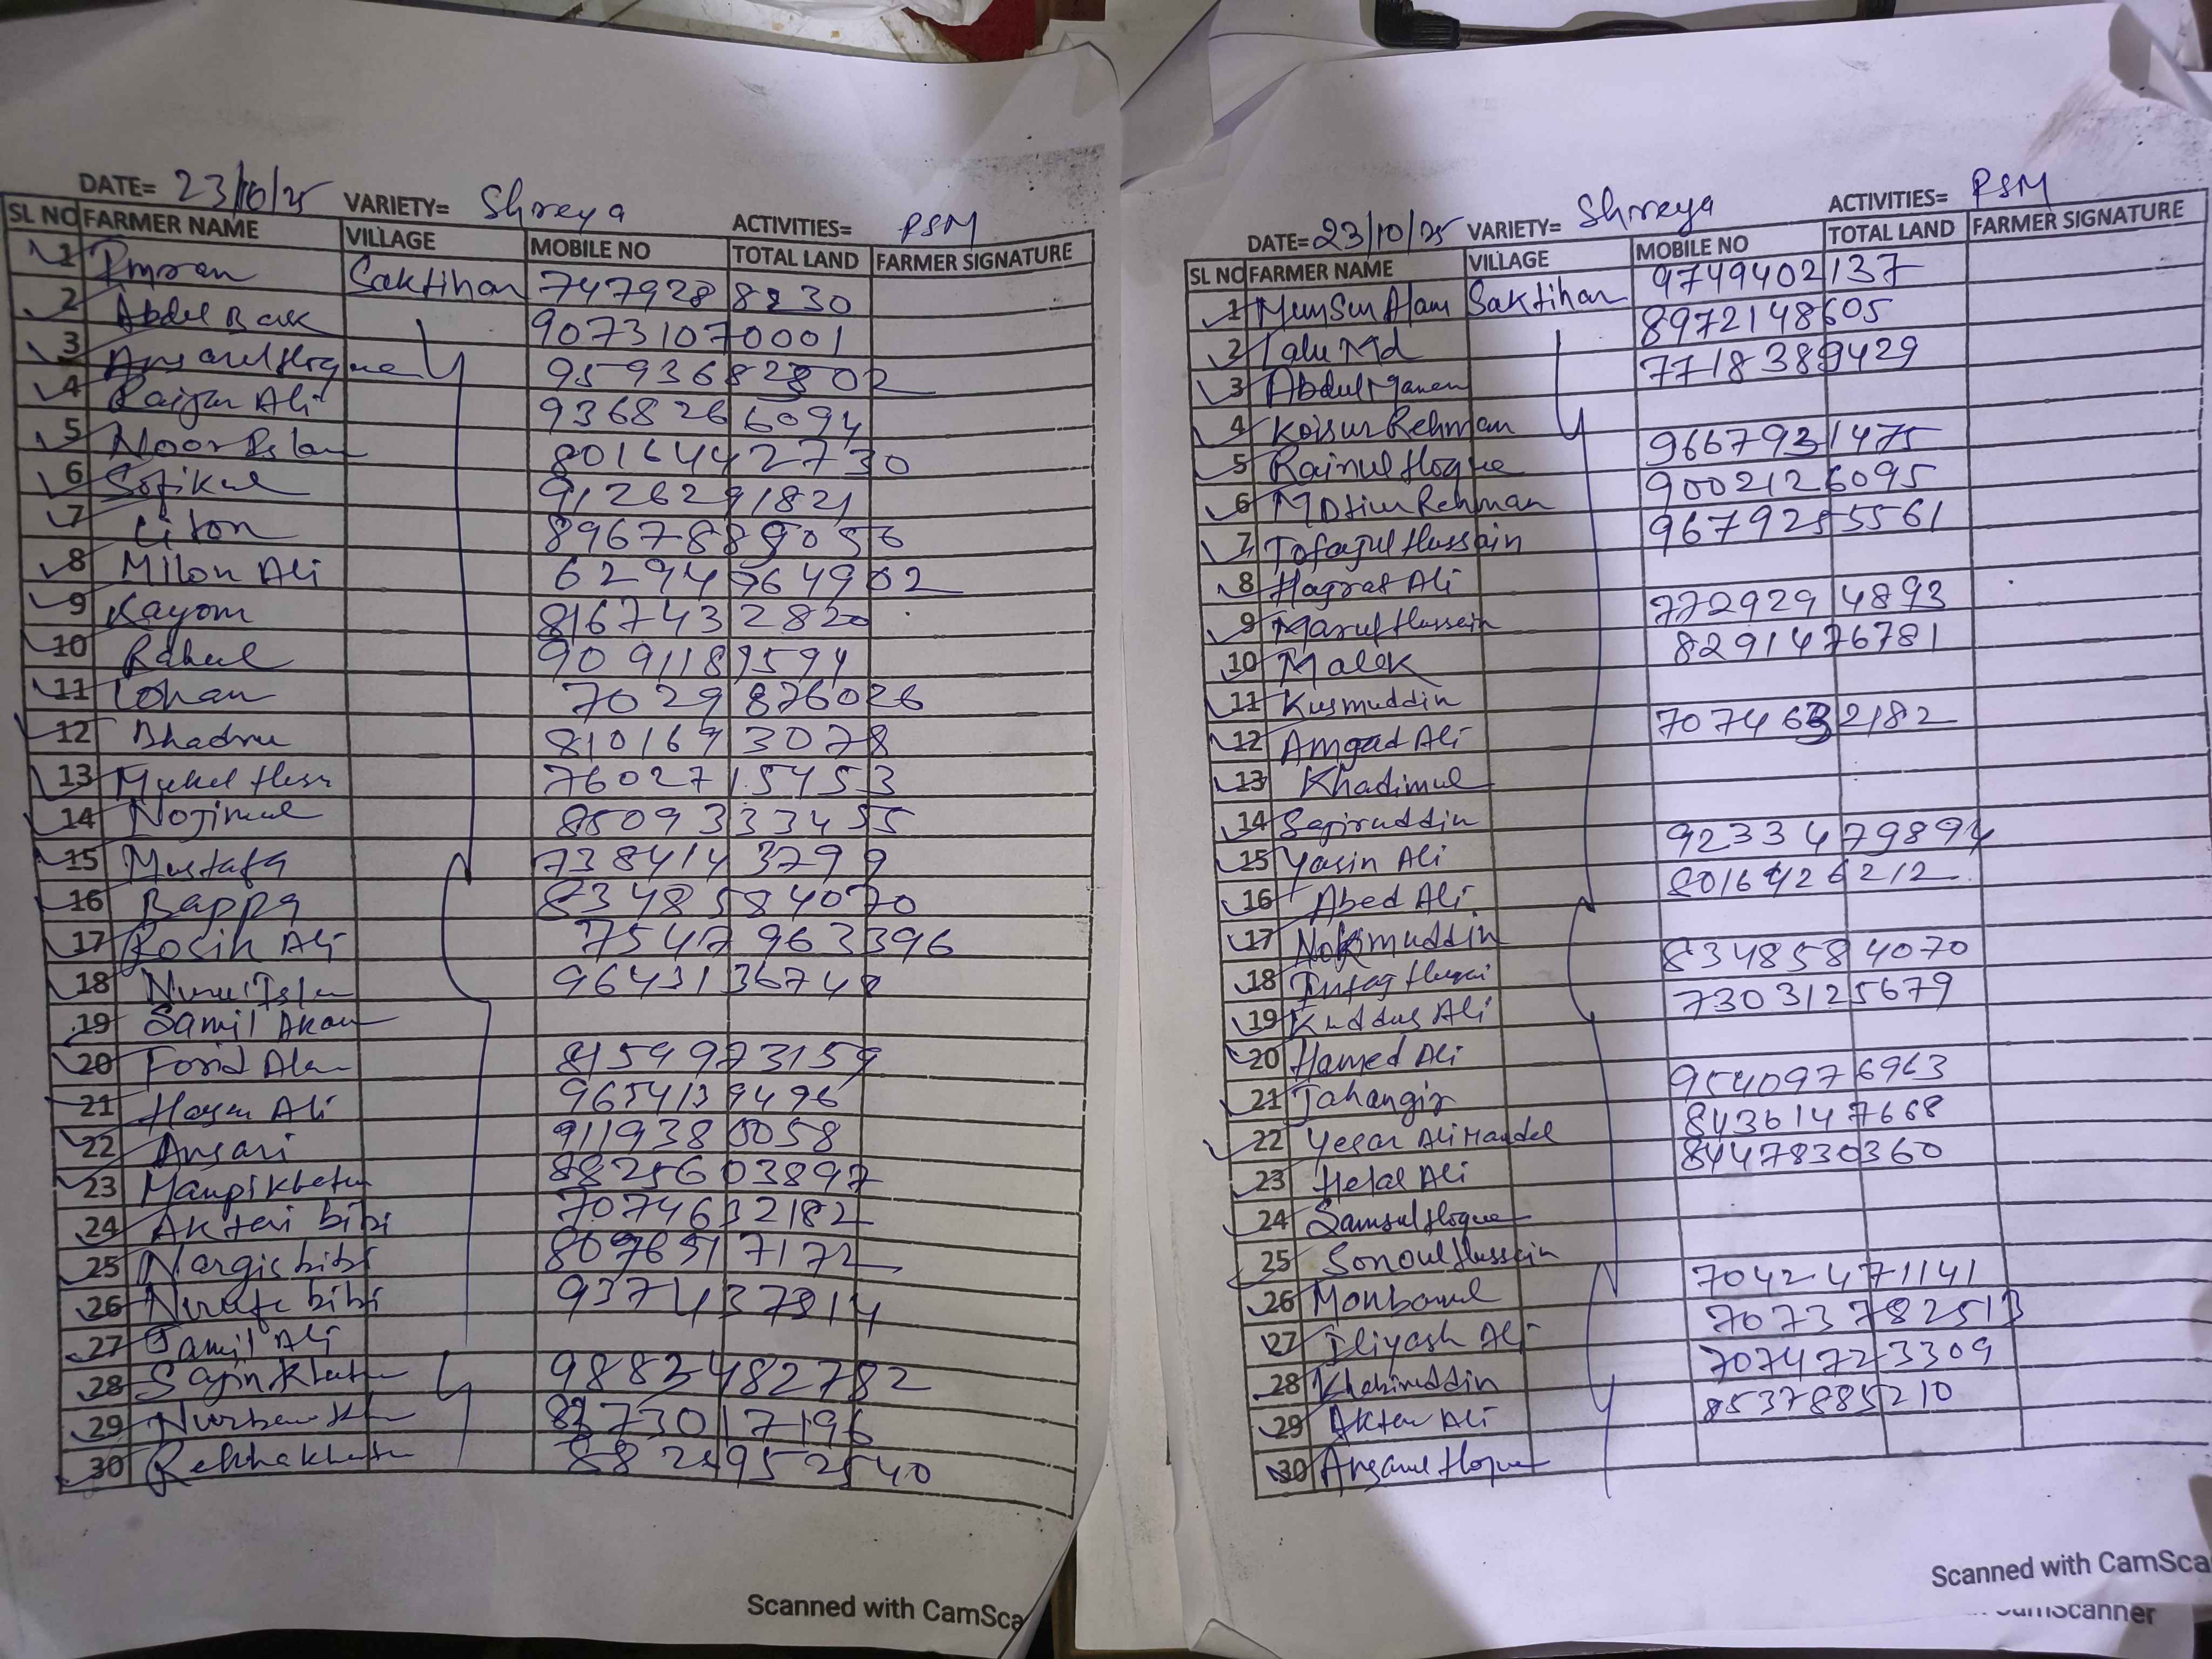 DATE= 23/10/25 VARIETY= Shreya ACTIVITIES= PSM
SL NO FARMER NAME VILLAGE MOBILE NO TOTAL LAND FARMER SIGNATURE
1 Imran Saktihar 7479288230
2 Abdul Bark 90731070001
3 Ansarul Hoque 9593682802
4 Raijan Ali 9368266094
5 Noor Islam 80164442730
6 Sofikul 9126291821
7 Liton 8967889056
8 Milon Ali 62949764902
9 Kayom 8167432820
10 Rahul 9091189594
11 Lohan 7029876026
12 Bhadru 8101693078
13 Mukul 7602715453
14 Nojimul 8509333455
15 Mustafa 7384143799
16 Bappa 8348584070
17 Rosih Ali 7547963396
18 Nurul Isla 9643136748
19 Samil Akan
20 Forid Alam 8159973159
21 Hasen Ali 9654139496
22 Ansari 9119380058
23 8825603897
24 Aktari bibi 7074632182
25 Nargis bibi 8097657172
26 bibi 9374437814
27 Jamil Ali
28 9883482782
29 8373017196
30 Rekhakhatun
DATE= 23/10/25 VARIETY= Shreya ACTIVITIES= PSM
SL NO FARMER NAME VILLAGE MOBILE NO TOTAL LAND FARMER SIGNATURE
1 Mumsur Alam Saktihar 9749402137
2 Lalu Md 8972148605
3 Abdul Manan 7718389429
4 Koisur Rehman
5 Rainul Hoque 9667931475
6 Motiur Rehman 9002126095
7 Tofajul Hussain 9679255561
8 Hagrat Ali
9 Maruf Hussein 7729294893
10 Malek 8291476781
11 Kusmuddin
12 Amgad Ali 7074632182
13 Khadimul
14 Sagiruddin
15 Yasin Ali 9233479894
16 Abed Ali 8016426212
17 Nokimuddin
18 8348584070
19 Kuddus Ali 7303125679
20 Hamed Ali
21 Jahangir 9540976963
22 Yesar Ali Mandel 8436147668
23 Helal Ali 8447830360
24 Samsul Hoque
25 Sonoul Hussein
26 Monbowul 7042471141
27 Iliyash Ali 7073782513
28 Khabiruddin 7074723309
29 Aktar Ali 8537885210
30 Ansarul Hoque
Scanned with CamSca
Scanned with CamSca
CamScanner